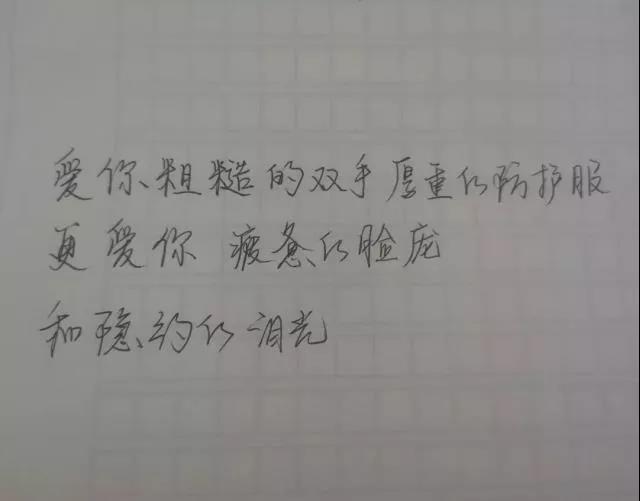 爱你粗糙的双手厚重的防护服
更爱你 疲惫的脸庞
和隐约的泪光